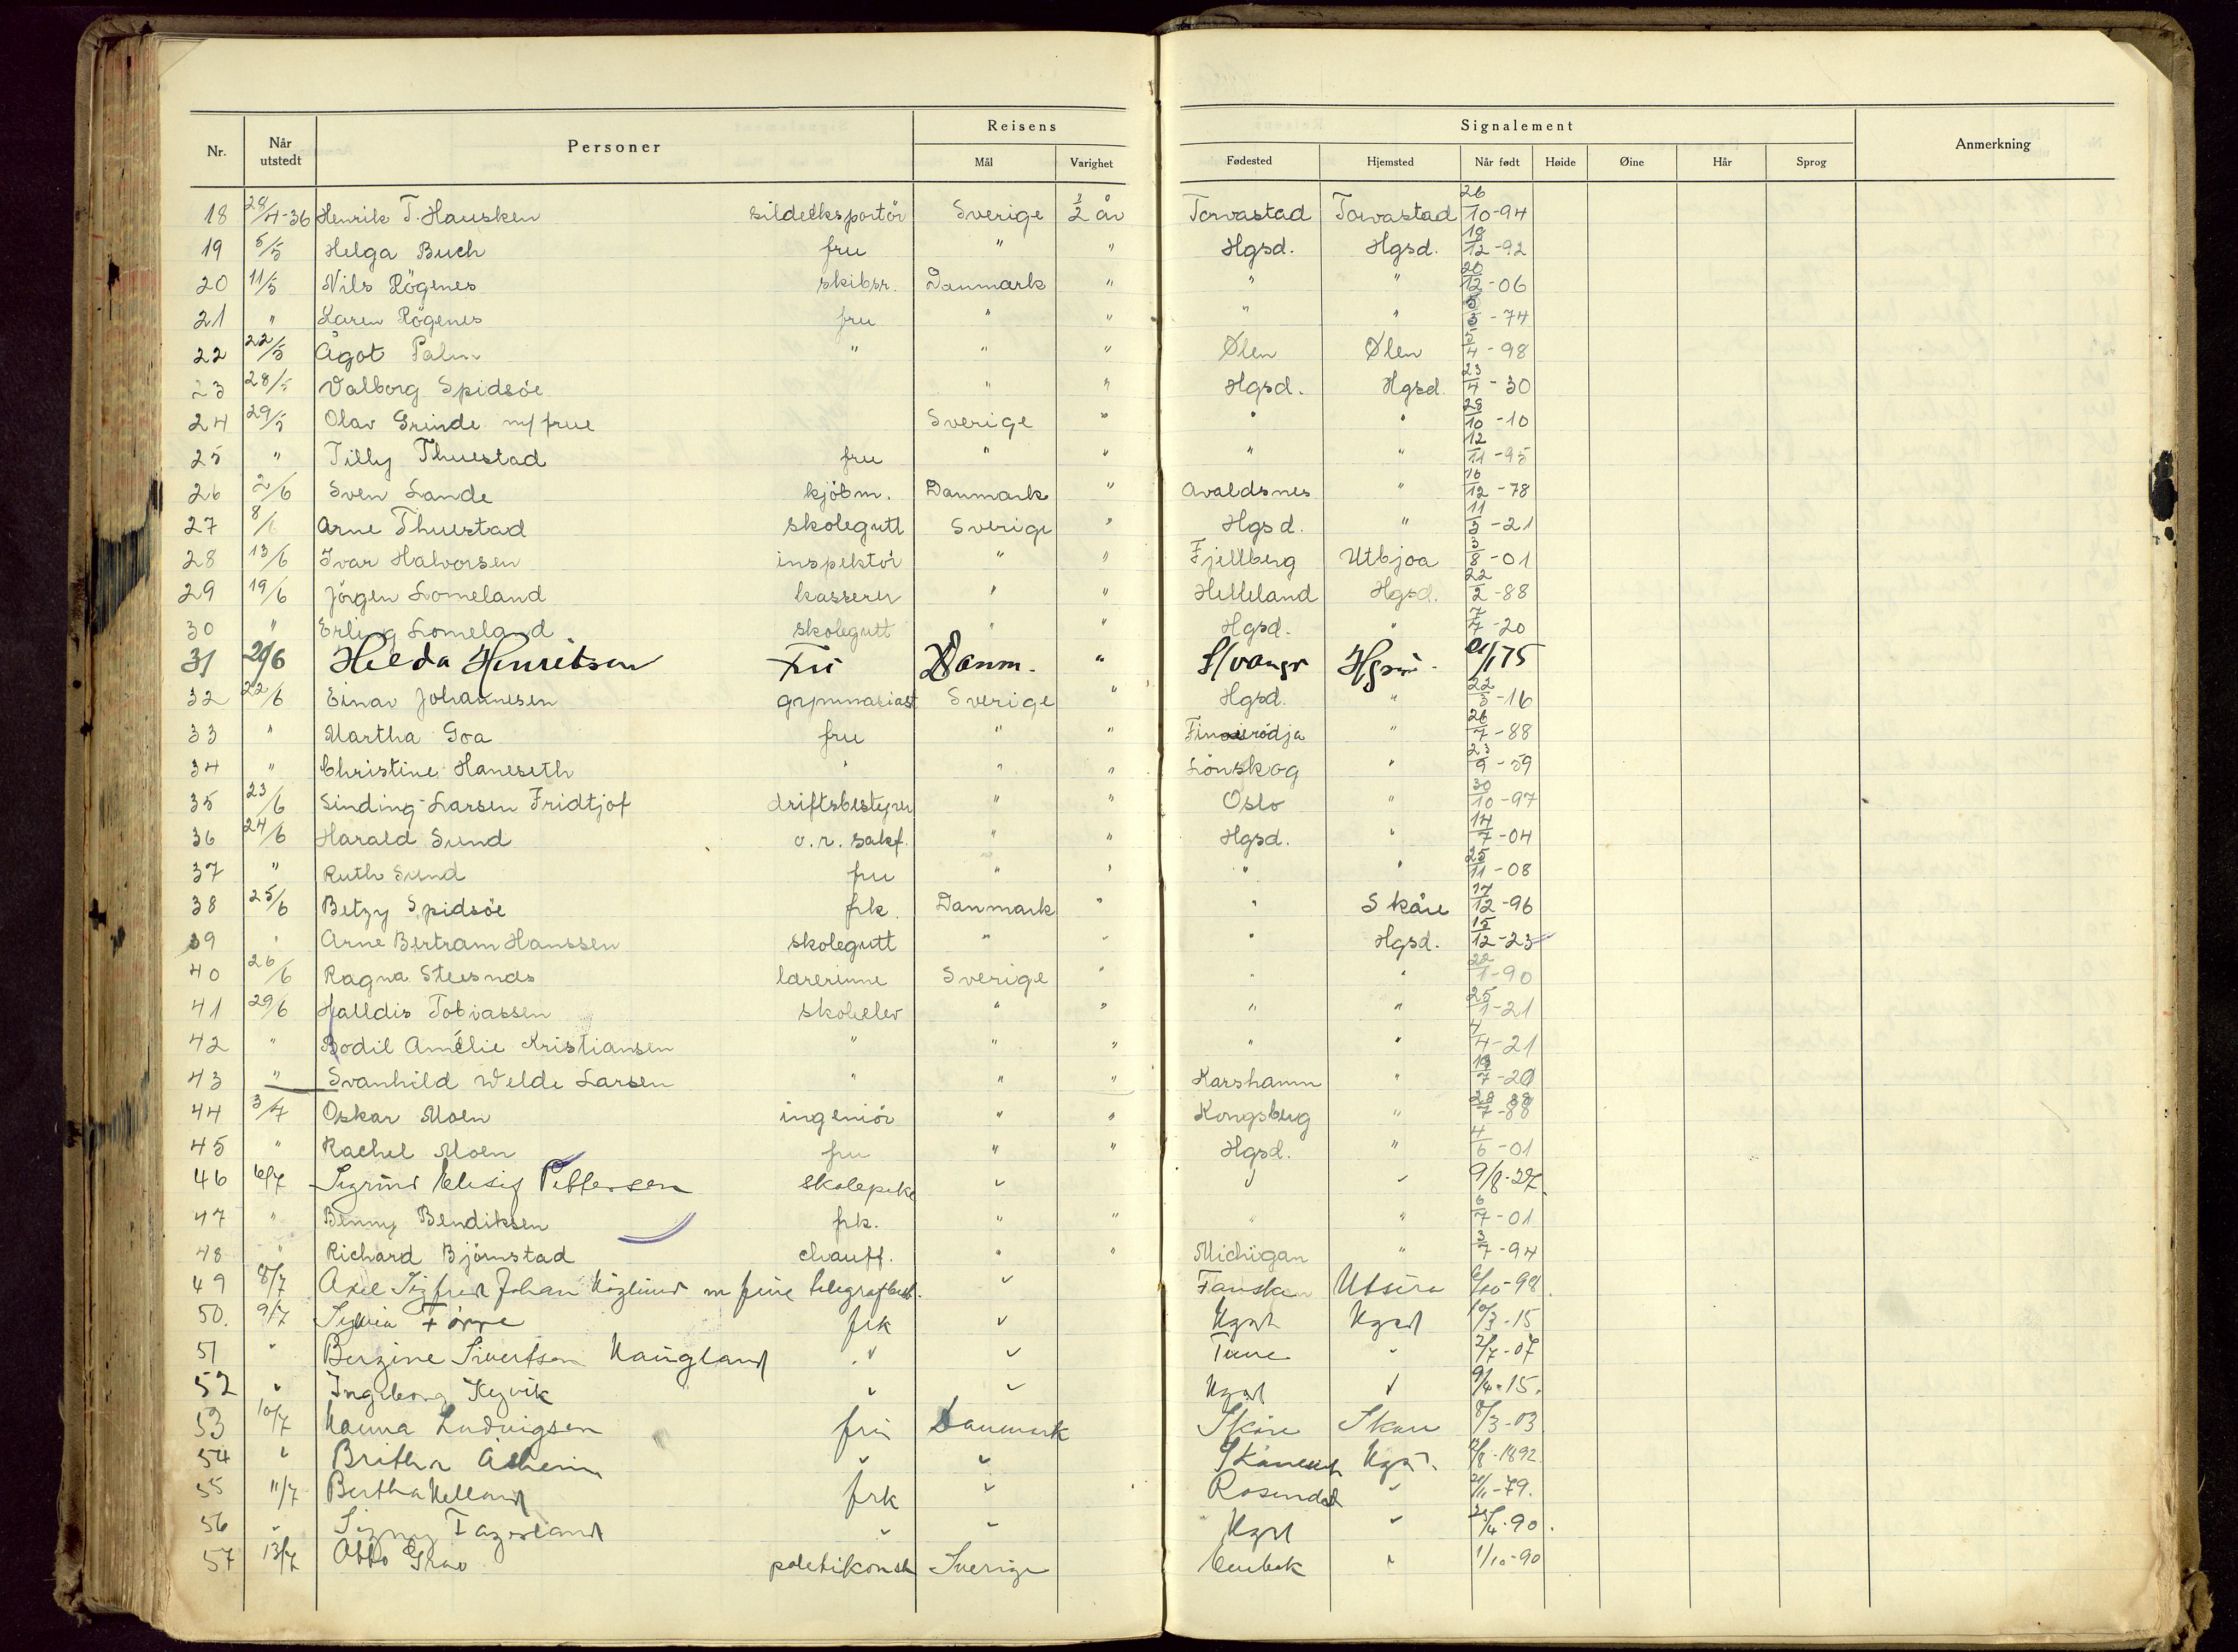 Nr. Når utstedt Personer Reisens Mål Varighet Signalement Fødested Hjemsted Når født Høide Øine Hår Sprog Anmerkning
18 28/4-36 Henrik T. Hausken sildeeksportör Sverige 1/2 år Torvastad Torvastad 26/10-94
19 5/5 Helga Buch fru " " Hgsd. Hgsd. 18/12-92
20 11/5 Nils Rögenes skibsr. Danmark " " " 20/12-06
21 " Karen Rögenes fru " " " " 5/3-74
22 22/5 Ågot Palm " " " Ølen Ølen 5/4-98
23 28/5 Valborg Spidsöe " " Hgsd. Hgsd. 23/4-30
24 29/5 Olav Grinde m/frue Sverige " " " 28/10-10
25 " Tilly Thuestad fru " " " " 12/11-95
26 2/6 Sven Lande kjöbm. Danmark " Avaldsnes " 16/12-78
27 8/6 Arne Thuestad skolegutt Sverige " Hgsd. " 11/3-21
28 13/6 Ivar Halvorsen inspektör " " Fjellberg Utbjoa 3/8-01
29 19/6 Jörgen Lomeland kasserer " " Helleland Hgsd. 22/2-88
30 " Erling Lomeland skolegutt " " Hgsd. " 7/7-20
31 20/6 Helda Henriksen Fru Danm. " S/vangr 75
32 22/6 Einar Johannesen gymnasiast Sverige " Hgsd. " 22/3-16
33 " Martha Goa fru " " Finnerödja " 26/7-88
34 " Christine Haneseth " " " Lönskog " 23/9-59
35 23/6 Sinding-Larsen Fridtjof driftsbestyrer " " Oslo " 30/10-97
36 24/6 Harald Sund o.r. sakf. " " Hgsd. " 14/7-04
37 " Ruth Sund fru " " " " 25/11-08
38 25/6 Betzy Spidsöe frk. Danmark " " Skåre 17/12-96
39 " Arne Bertram Hanssen skolegutt " " " Hgsd. 15/12-23
40 26/6 Ragna Steesnæs lærerinne Sverige " " " 22/1-90
41 29/6 Halldis Tobiassen skoleelev " " " " 25/1-21
42 " Bodil Amélie Kristiansen " " " " " 4/4-21
43 " Svanhild Welde Larsen " " " Karshamn " /7-20
44 3/7 Oskar Moen ingeniör " " Kongsberg " 28/7-88
45 " Rachel Moen fru " " Hgsd. " 4/6-01
46 6/7 Sigrid Elisif Pettersen skolepike " " " 9/8-27
47 " Benny Bendiksen frk. " " " " 6/7-01
48 " Richard Björnstad chauff. " " Michigan " 3/7-94
49 8/7 Axel Sigfred Johan Höglund m frue telegrafbest. " Utsira 6/10-98
50. 9/7 Sylvia Förre frk " Hgsd Hgsd 10/3-15
51 " Berzine Sivertsen Haugland " " Tune " 2/7-07
52 " Ingeborg Kyvik " " Hgsd " 9/4-15.
53 10/7 Hanna Ludvigsen fru Danmark Skåre Skåre 8/3-03
54 " Britha " " Hgsd. /8-1892
55 11/7 Bertha Helland frk " Rosendal " 21/11-79.
56 " Signy Fagerland " " Hgsd " 23/4-90.
57 13/7 Otto Grav politikonst Sverige " 1/10-90